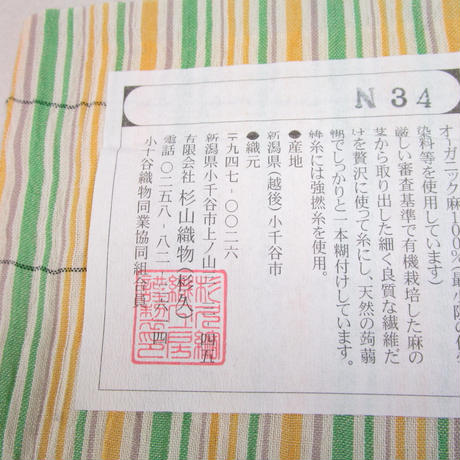 N34
オーガニック麻100%(最小限の
染料等を使用しています)
厳しい審査基準で有機栽培した麻の
茎から取り出した細く良質な繊維だ
けを贅沢に使って糸にし、天然の蒟蒻
糊でしっかりと一本糊付けしています。
緯糸には強撚糸を使用。
●産地
新潟県(越後)小千谷市
●織元
〒947-0026
新潟県小千谷市上ノ山
四
五
有限会社 杉山織物(杉久)
電話〇二五八-八二
小千谷織物同業協同組合員